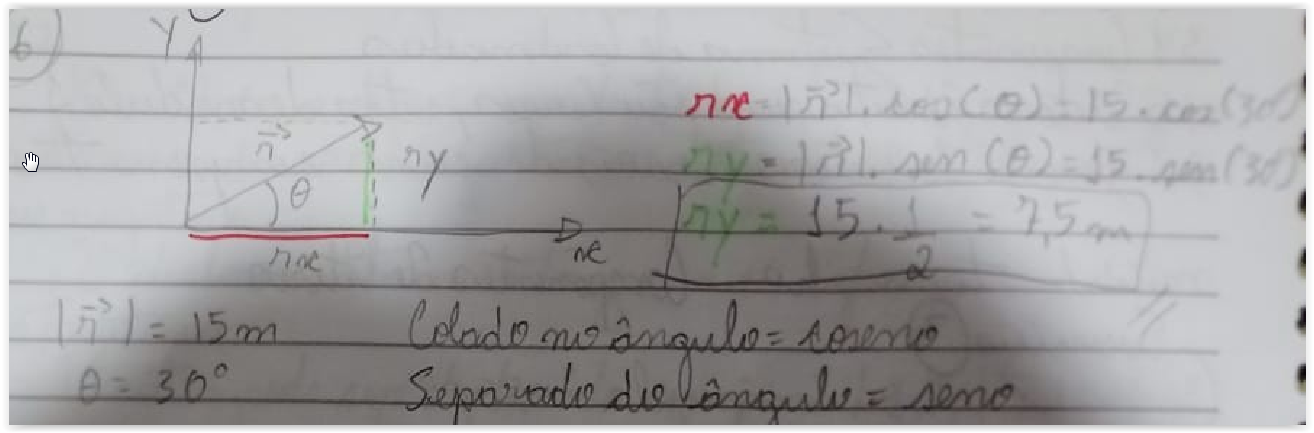 6)
Y
r⃗
θ
ry
rx
x
rx = |r⃗|. cos(θ) = 15. cos(30)
ry = |r⃗|. sen(θ) = 15. sen(30)
ry = 15. 1/2 = 7,5 m
|r⃗| = 15m
θ = 30°
Colado no ângulo = coseno
Separado do ângulo = seno